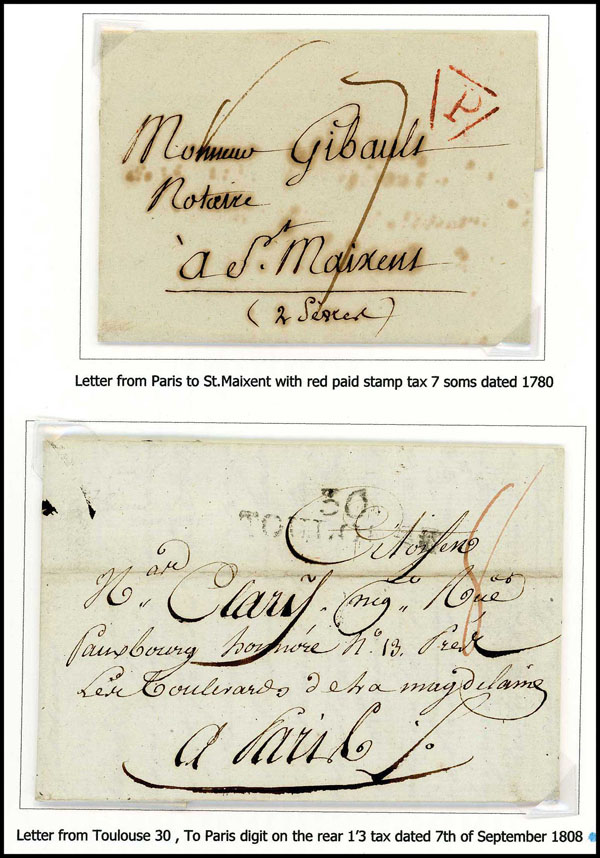 P
7
Monsieur Gibault
Notaire
à St. Maixent
(2 Sèvres)
Letter from Paris to St.Maixent with red paid stamp tax 7 soms dated 1780
30
TOULOUSE
Citoyen
Clary, neg. Rue
fauxbourg honnoré No. 13. Près
Les Boulevards de La magdelaine
a Paris
Letter from Toulouse 30 , To Paris digit on the rear 1'3 tax dated 7th of September 1808